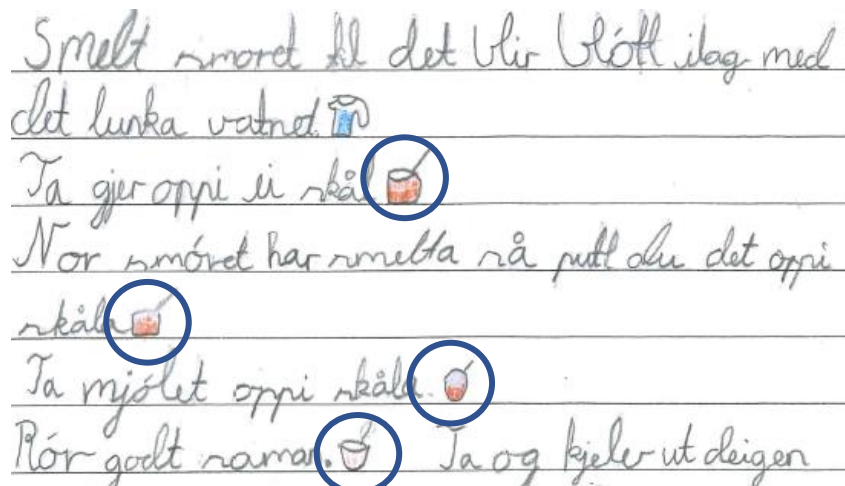 Smelt smoret til det blir blótt ilag med
det lunka vatnet.
Ta gjer oppi ei skål
Nor smóret har smelta så putt du det oppi
skåla
Ta mjólet oppi skåla.
Rór godt saman. Ta og kjeler ut deigen